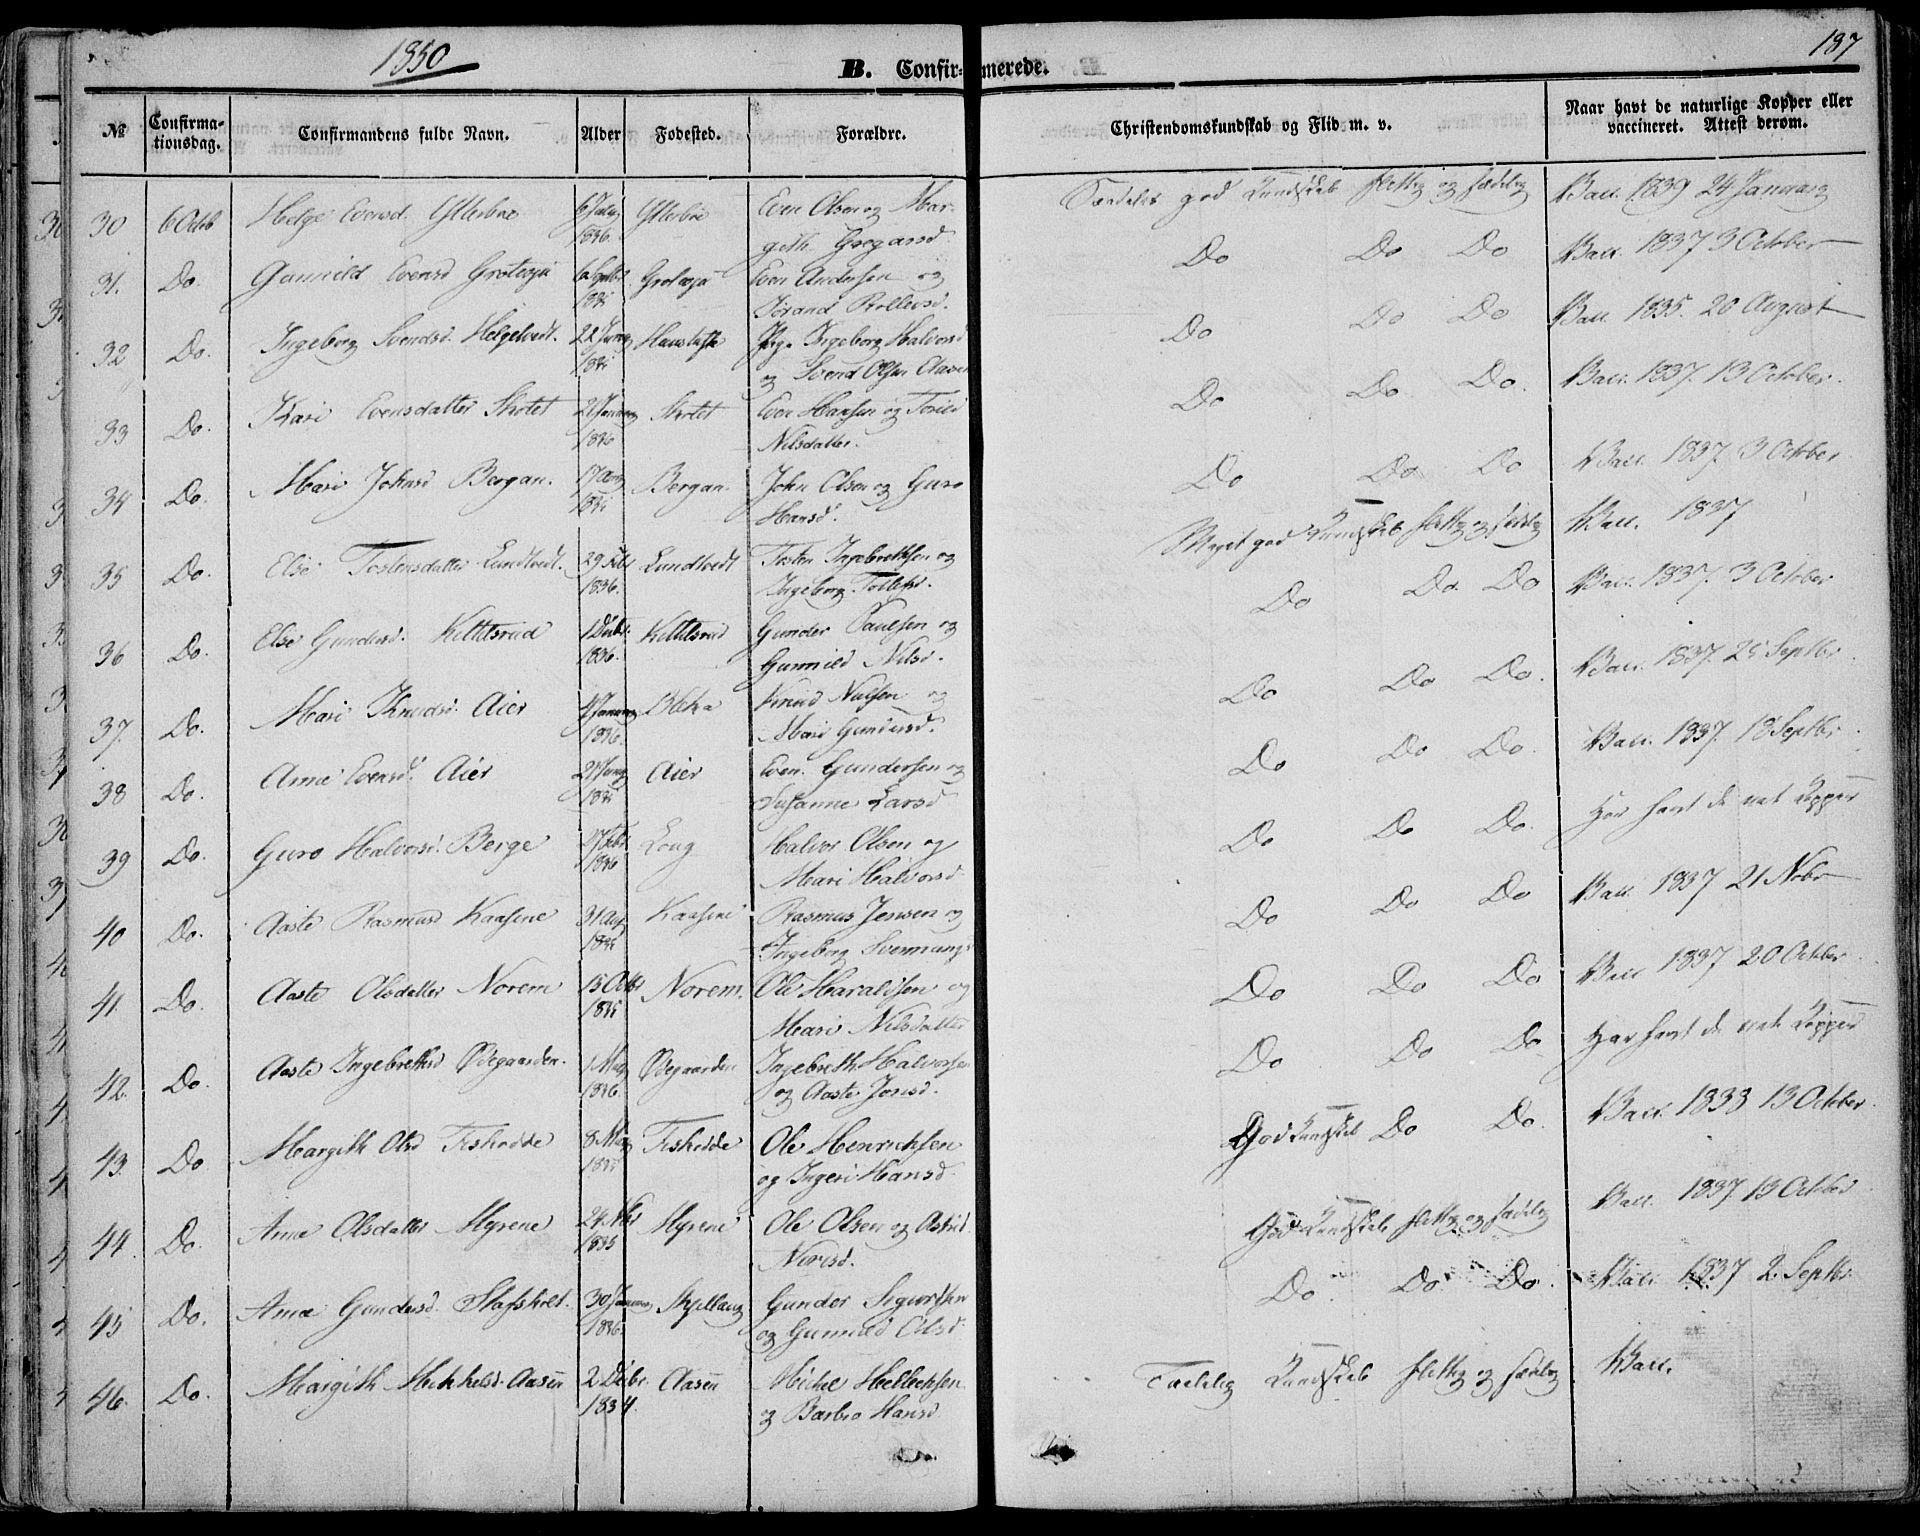 1850
187
B. Confirmerede.
№ Confirma-tionsdag. Confirmandens fulde Navn. Alder Fødested. Forældre. Christendomskundskab og Flid m. v. Naar havt de naturlige Kopper eller vaccineret. Attest derom.
30 6 Octb Helge Evensd. Ytterbøe 6 July 1836. Ytterbøe Even Olsen og Mar- Særdeles god Kundskab flittig og sædelig Vacc. 1839 24 Januarij
geth Gregarsd.
31. Do. Gunnild Evensd Grotvaja Even Andersen og Do Do Do Vacc. 1837 3 October
Jorand Rollevsd.
32 Do. Ingeborg Svendsd. Helgetvedt. Pige Ingeborg Halvorsd Do Do Do Vacc. 1835. 20 August
og Svend Olsen
33 Do. Kari Evensdatter Skotet 1836 Skotet Even Hansen og Torild Do Do Do. Vacc. 1837. 13 October.
Nilsdatter.
34 Do. Mari Johnsd Bergan. Bergan. John Olsen og Guro Do Do Do Vacc. 1837. 3 October
Hansd.
35 Do. Else Tostensdatter Lundtvedt. 29 Feb 1836. Lundtvedt Tosten Ingebrethsen og Meget god Kundskab flittig og sædelig Vacc. 1837
Ingeborg Tollefsd.
36 Do. Else Gundersd. Kittilsrud 1 Debr. 1836. Kittilsrud Gunder Paulsen og Do Do. Do Vacc. 1837. 3 October
Gunnild Nilsd.
37. Do. Mari Knudsd. Aier 1836. Bleka Knud Nielsen og Do Do Do. Vacc. 1837. 25 Septbr
Mari Gundersd.
38 Do. Anne Evensd. Aier Aier Even Gundersen og Do Do Do. Vacc. 1837. 18 Septbr.
Susanne Larsd
39 Do. Guro Halvorsd. Berge 27 Febr. 1836 Loug Halvor Olsen og Do Do Do. Har havt de nat Kopper
Mari Halvorsd
40 Do. Aaste Rasmusd Kaasene 31 Aug 1835 Kaasene Rasmus Jensen og Do Do Do Vacc. 1837 21 Nobr
Ingeborg
41. Do. Aaste Olsdatter Norem 15 Octbr 1835 Norem. Ole Haraldsen og Do Do Do Vacc 1837 20 October
Mari Nilsdatter
42. Do. Aaste Ingebrethsd Ødegaarden. 1 May 1836. Ødegaarden Ingebreth Halvorsen Do Do Do. Har havt de nat Kopper
og Aaste Jonsd.
43. Do Margith Olsd Fiskodde 8 May 1835 Fiskodde Ole Henrichsen God Kundskab Do Do. Vacc. 1838 13 October
og Ingeri Hansd.
44. Do. Anne Olsdatter Myrene 24 1835 Myrene Ole Olsen og Astrid God Kundskab flittig og sædelig Vacc. 1837 13 October
45 Do. Anne Gundersd. Stafsholt. 30 Januar 1836. Gunder Sigurdsen Do. Do. Do. Vacc. 1837 2. Septbr
og Gunnild Olsd.
46. Do. Margith Mikkelsd. Aasen 2 Debr. 1834. Aasen Mickel Hellechsen Taalelig Kundskab flittig og sædelig Vacc.
og Barbro Hansd.